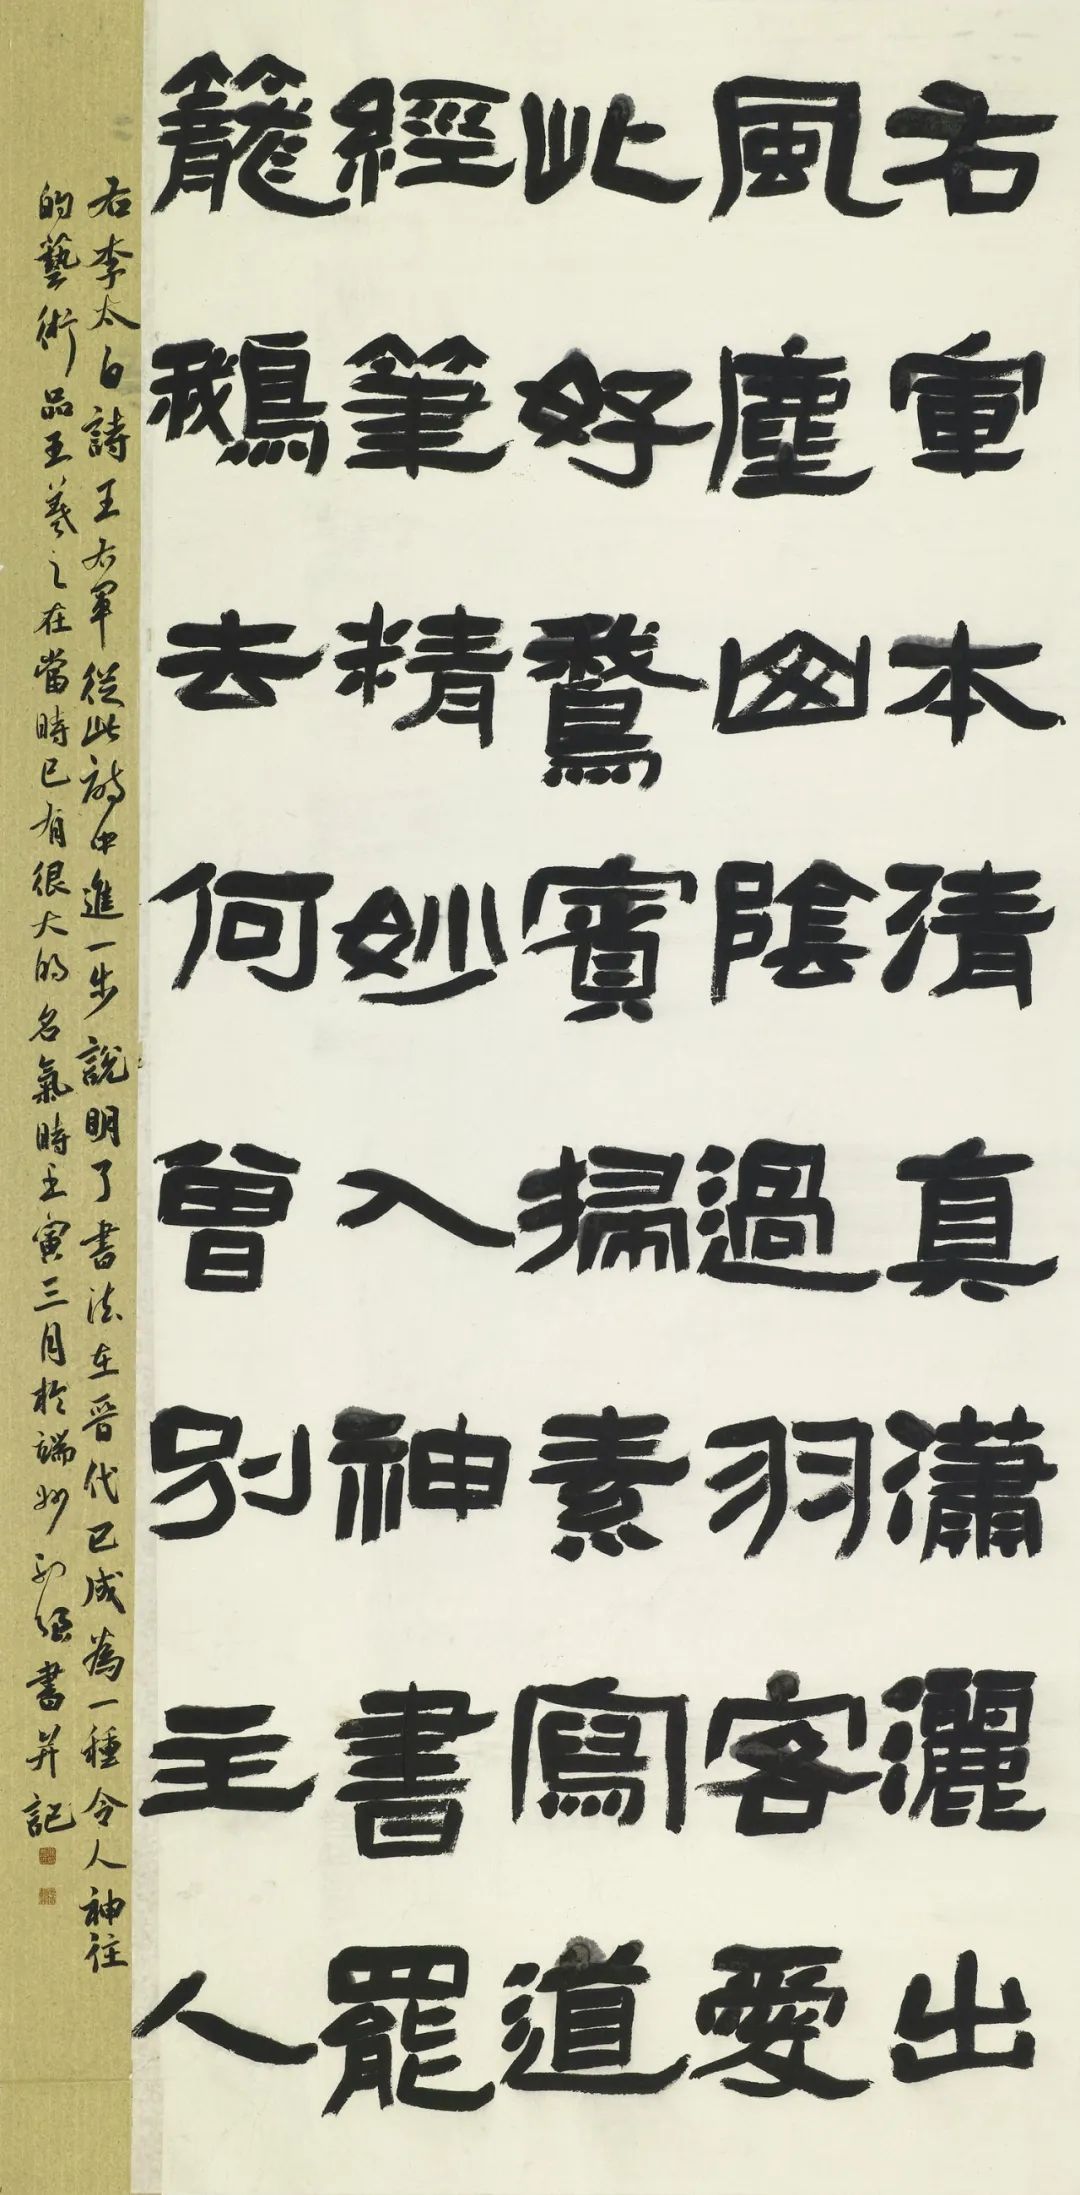 右軍本清真瀟灑出
風塵山陰過羽客愛
此好鵞賓掃素寫道
經筆精妙入神書罷
籠鵝去何曾別主人
右李太白詩王右軍從此詩中進一步說明了書法在晉代已成為一種令人神往
的藝術品王羲之在當時已有很大的名氣時壬寅三月於端州書并記